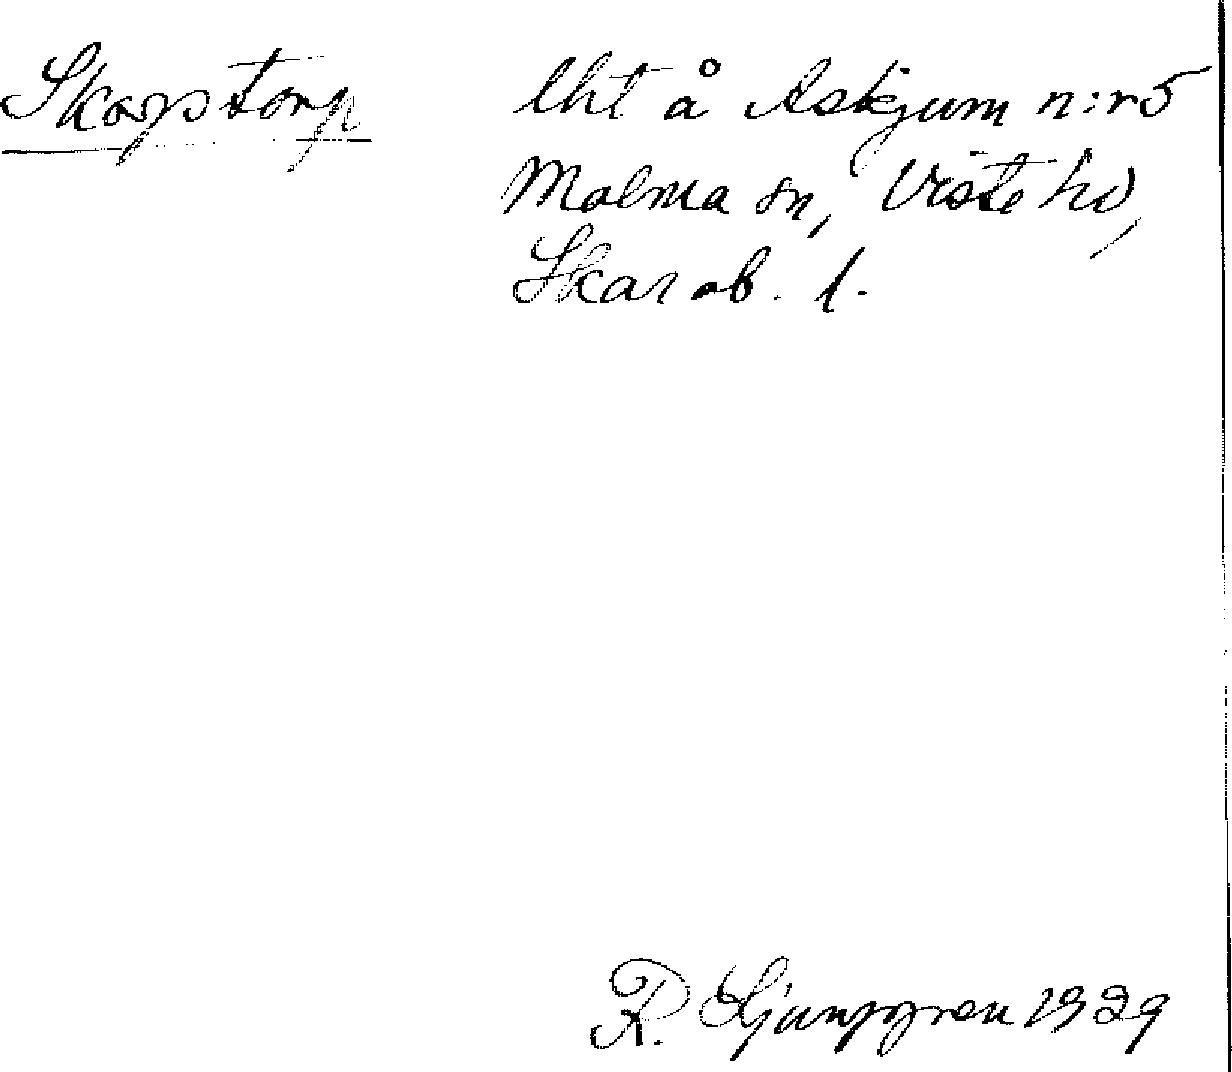 Skogstorp lht å Askjum n:r 5
Malma sn, Viste hd,
Skarab. l.
R. Ljunggren 1929